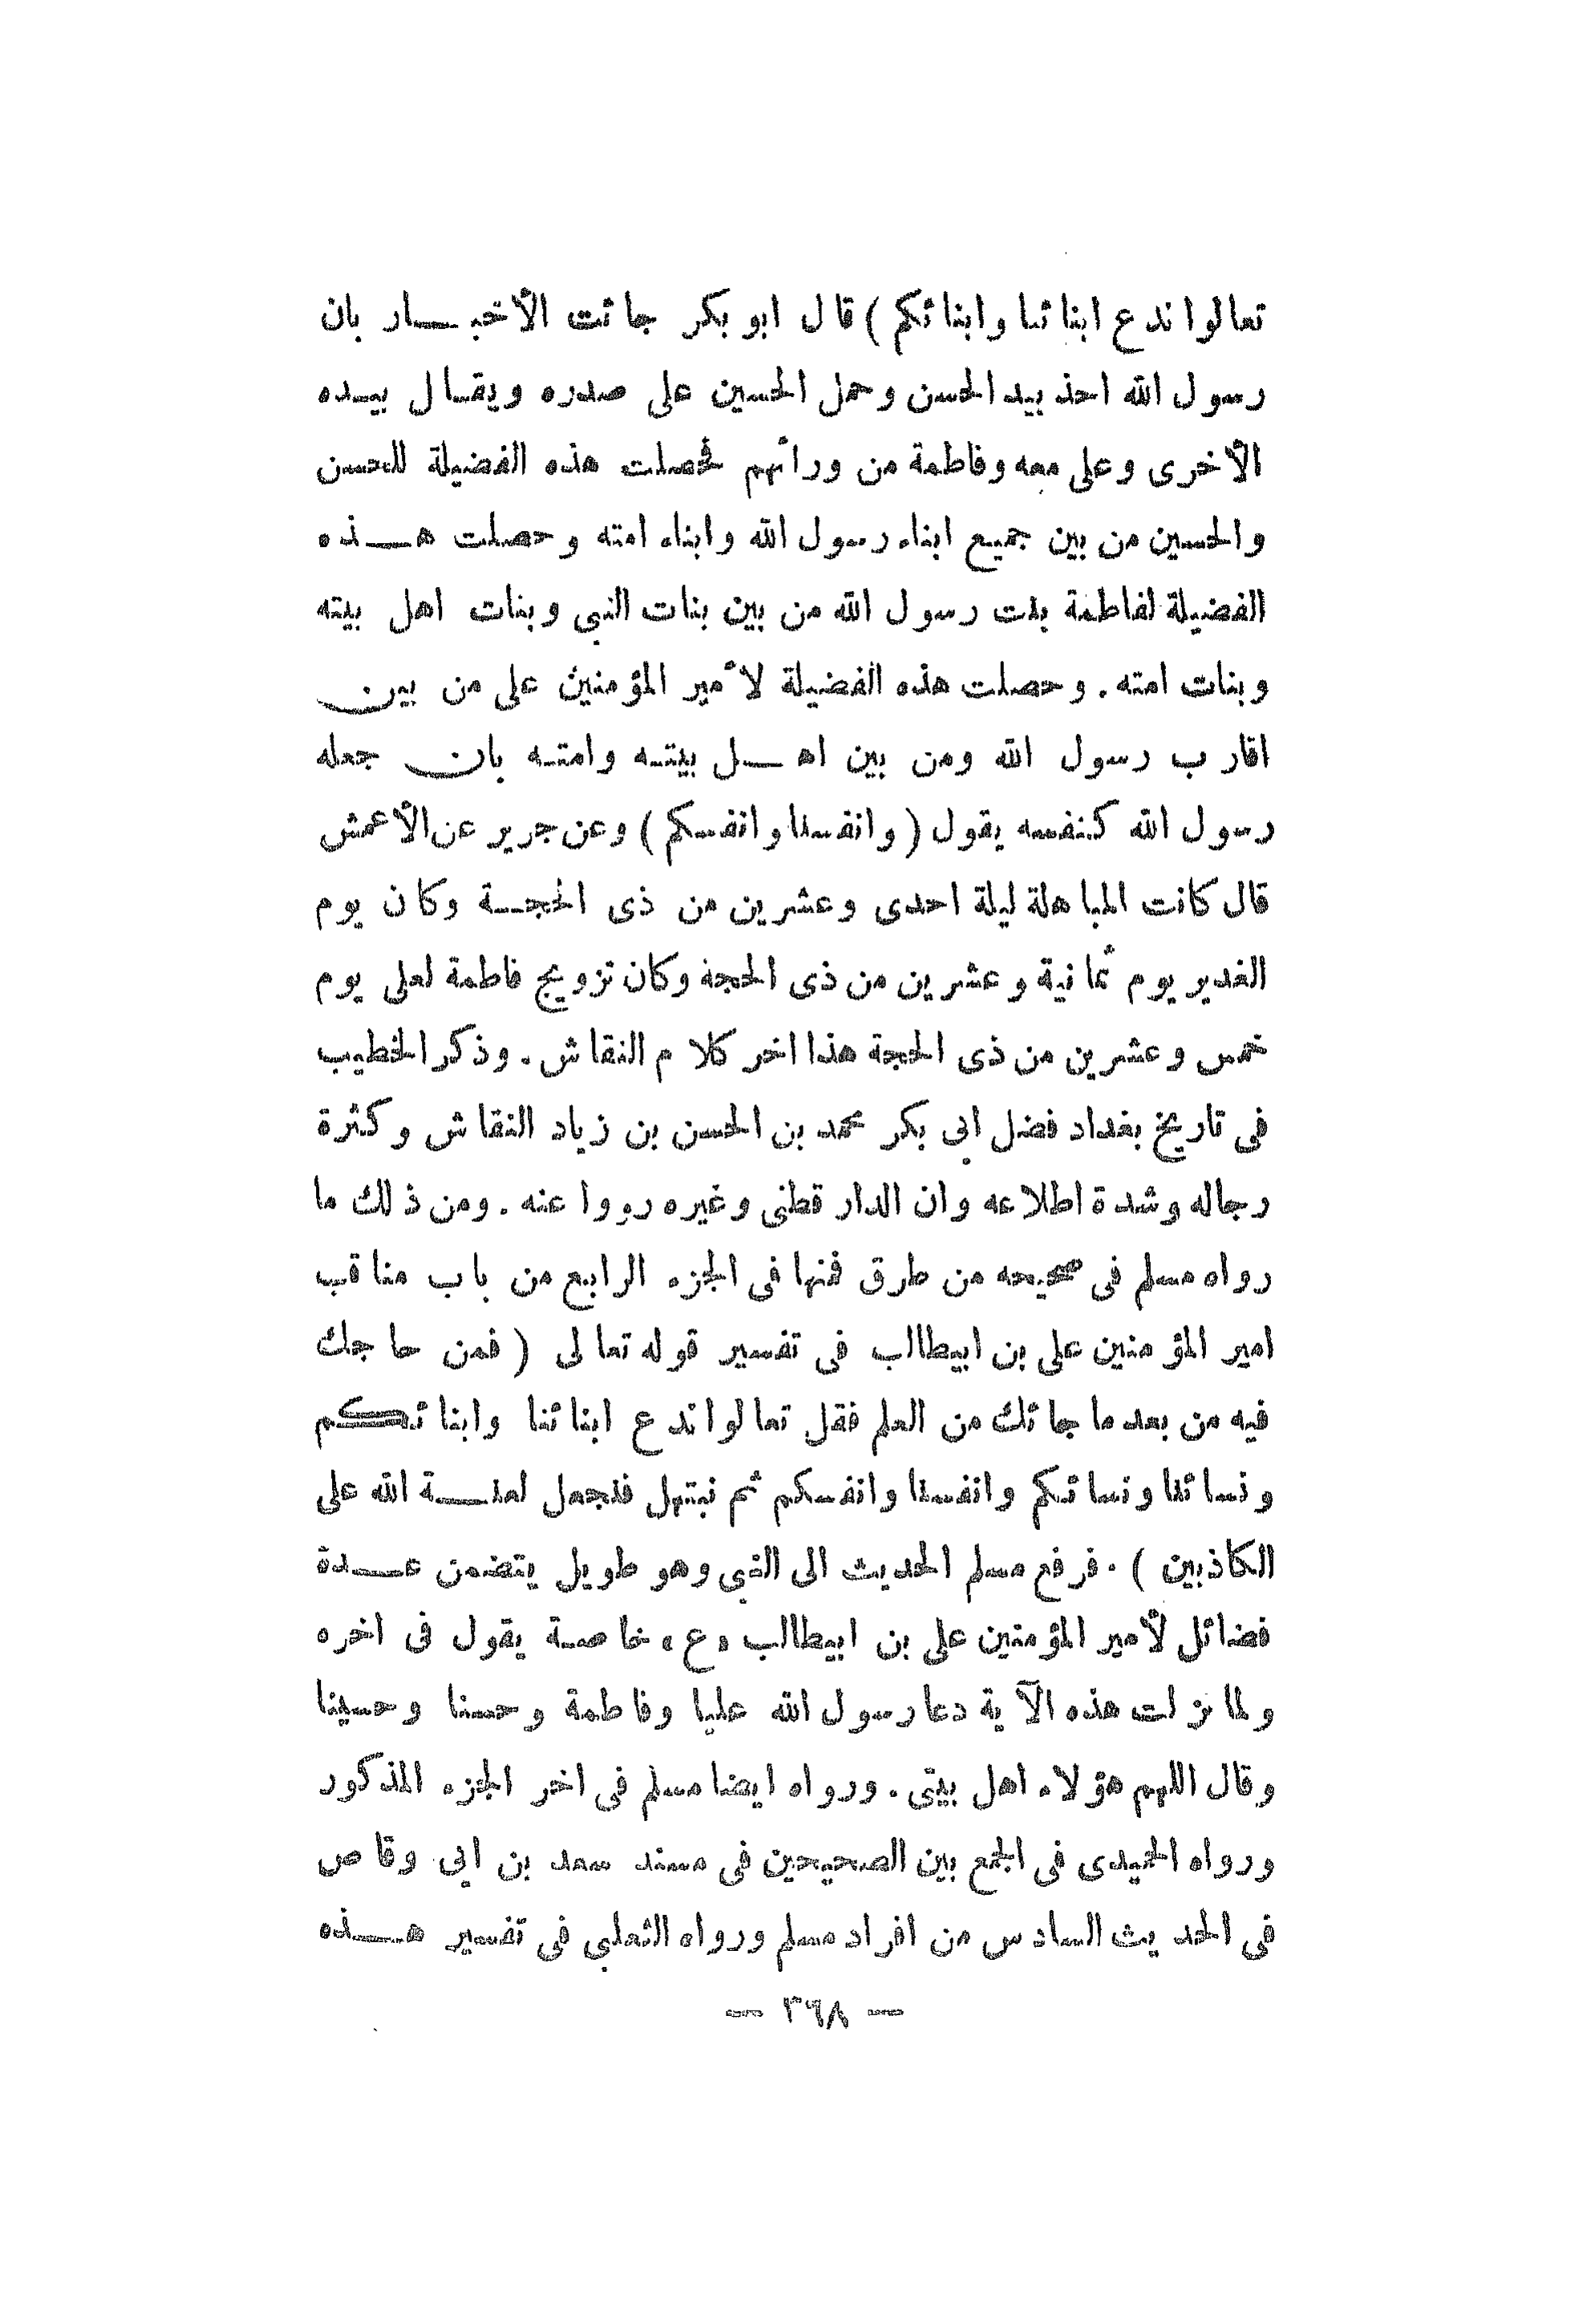 تعالوا ندع ابنائنا وابنائكم ) قال ابو بكر جائت الأخبـــار بان
رسول الله اخذ بيد الحسن وحمل الحسين على صدره ويقـال بيـده
الأخرى وعلى معه وفاطمة من ورائهم فحصلت هذه الفضيلة للحسن
والحسين من بين جميع ابناء رسول الله وابناء امته وحصلت هـــذه
الفضيلة لفاطمة بنت رسول الله من بين بنات النبى وبنات اهل بيته
وبنات امته . وحصلت هذه الفضيلة لأمير المؤمنين على من بين
اقارب رسول الله ومن بين اهـــل بيتـه وامتـه بان جعله
رسول الله كنفسه يقول ( وانفسنا وانفسكم ) وعن جرير عن الأعمش
قال كانت المباهلة ليلة احدى وعشرين من ذى الحجـــة وكان يوم
الغدير يوم ثمانية وعشرين من ذى الحجة وكان تزويج فاطمة لعلى يوم
خمس وعشرين من ذى الحجة هذا اخر كلام النقاش . وذكر الخطيب
فى تاريخ بغداد فضل ابى بكر محمد بن الحسن بن زياد النقاش وكثرة
رجاله وشدة اطلاعه وان الدار قطنى وغيره رووا عنه . ومن ذلك ما
رواه مسلم فى صحيحه من طرق فمنها فى الجزء الرابع من باب مناقب
امير المؤمنين على بن ابيطالب فى تفسير قوله تعالى ( فمن حاجك
فيه من بعد ما جائك من العلم فقل تعالوا ندع ابنائنا وابنائكم
ونسائنا ونسائكم وانفسنا وانفسكم ثم نبتهل فنجعل لعنـــة الله على
الكاذبين ) . فرفع مسلم الحديث الى النبى وهو طويل يتضمن عـــدة
فضائل لأمير المؤمنين على بن ابيطالب «ع» خاصة يقول فى اخره
ولما نزلت هذه الآية دعا رسول الله عليا وفاطمة وحسنا وحسينا
وقال اللهم هؤلاء اهل بيتى . ورواه ايضا مسلم فى اخر الجزء المذكور
ورواه الحميدى فى الجمع بين الصحيحين فى مسند سعد بن ابى وقاص
فى الحديث السادس من افراد مسلم ورواه الثعلبى فى تفسير هـــذه
— ٣٦٨ —